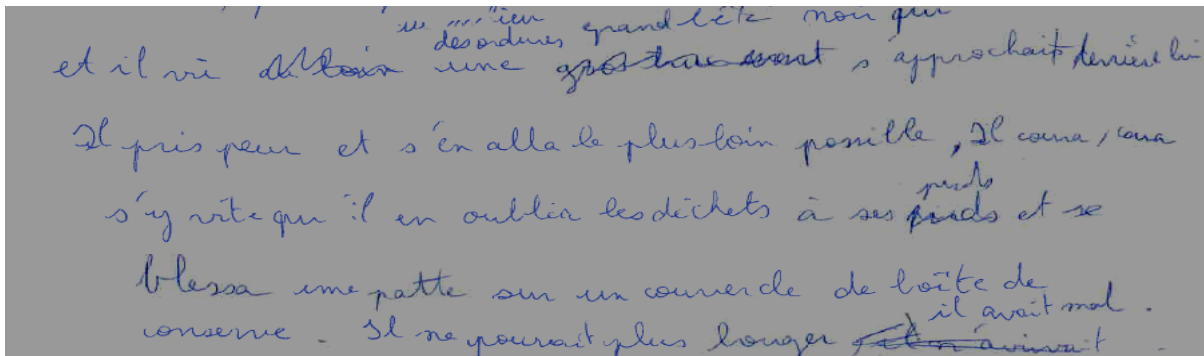 des ordures grand bête noir qui
et il vit une s'approchait derrière lui
Il pris peur et s'en alla le plus loin possible, Il coura, coura
s'y vite qu'il en oublia les déchets à ses pieds et se
blessa une patte sur un couvercle de boîte de
conserve. Il ne pourait plus bouger, il avait mal.